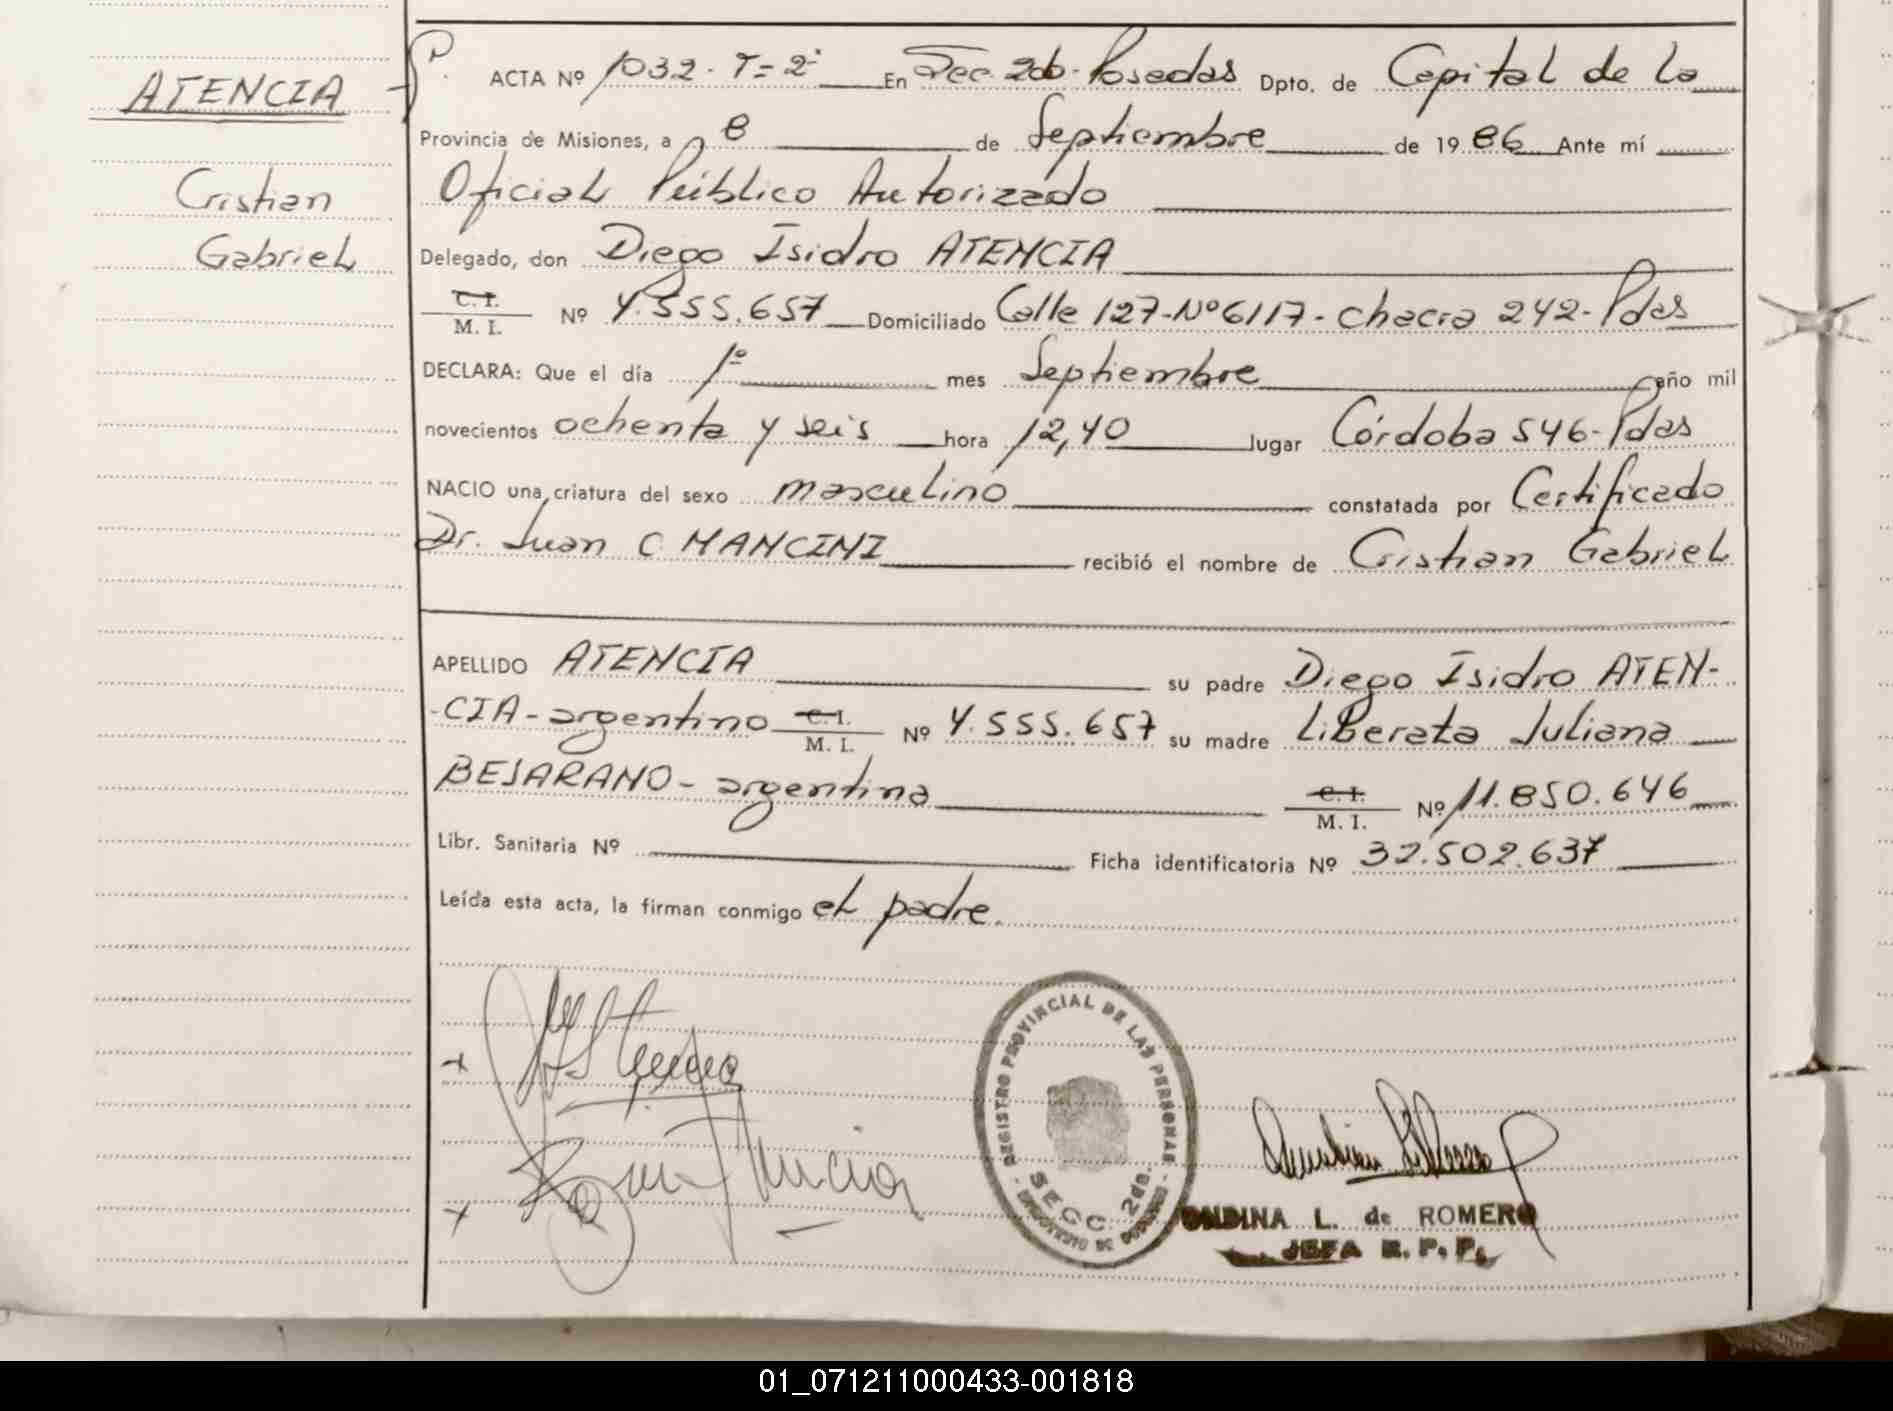 ATENCIA
Cristian
Gabriel
ACTA Nº 1032 - T = 2º En Sec. 2da. Posadas Dpto. de Capital de la
Provincia de Misiones, a 8 de Septiembre de 1986 Ante mí
Oficial Público Autorizado
Delegado, don Diego Isidro ATENCIA
C. I.
M. I. Nº 4.555.657 Domiciliado Calle 127-Nº6117-chacra 242-Pdas
DECLARA: Que el día 1º mes Septiembre año mil
novecientos ochenta y seis hora 12,40 lugar Córdoba 546-Pdas
NACIO una criatura del sexo masculino constatada por Certificado
Dr. Juan C. MANCINI recibió el nombre de Cristian Gabriel
APELLIDO ATENCIA su padre Diego Isidro ATEN-
-CIA-argentino C. I. M. I. Nº 4.555.657 su madre Liberata Juliana
BEJARANO-argentina C. I. M. I. Nº 11.850.646
Libr. Sanitaria Nº Ficha identificatoria Nº 32.502.637
Leída esta acta, la firman conmigo el padre.
REGISTRO PROVINCIAL DE LAS PERSONAS
SECC. 2da.
ONDINA L. de ROMERO
JEFA R. P. P.
01_071211000433-001818